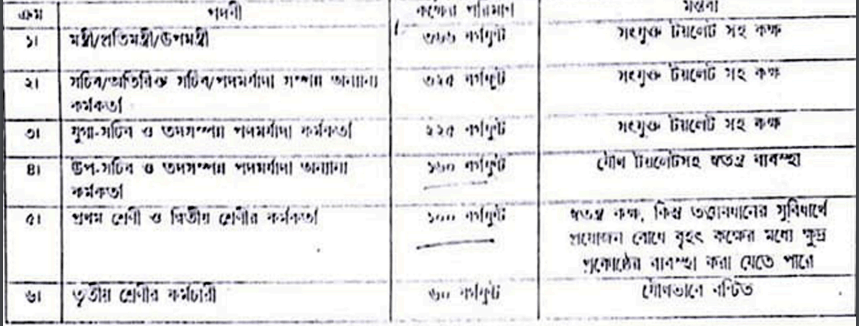 ক্রম পদবী কক্ষের পরিমাণ মন্তব্য
১। মন্ত্রী/প্রতিমন্ত্রী/উপমন্ত্রী ৩৬৬ বর্গফুট সংযুক্ত টয়লেট সহ কক্ষ
২। সচিব/অতিরিক্ত সচিব/পদমর্যাদা সম্পন্ন অন্যান্য ৩২৫ বর্গফুট সংযুক্ত টয়লেট সহ কক্ষ
কর্মকর্তা
৩। যুগ্ম-সচিব ও তদসম্পন্ন পদমর্যাদা কর্মকর্তা ২২৫ বর্গফুট সংযুক্ত টয়লেট সহ কক্ষ
৪। উপ-সচিব ও তদসম্পন্ন পদমর্যাদা অন্যান্য ১৬০ বর্গফুট যৌথ টয়লেটসহ স্বতন্ত্র ব্যবস্থা
কর্মকর্তা
৫। প্রথম শ্রেণী ও দ্বিতীয় শ্রেণীর কর্মকর্তা ১০০ বর্গফুট স্বতন্ত্র কক্ষ, কিন্তু তত্তাবধানের সুবিধার্থে
প্রয়োজন বোধে বৃহৎ কক্ষের মধ্যে ক্ষুদ্র
প্রকোষ্ঠের ব্যবস্থা করা যেতে পারে
৬। তৃতীয় শ্রেণীর কর্মচারী ৬০ বর্গফুট যৌথভাবে বন্টিত